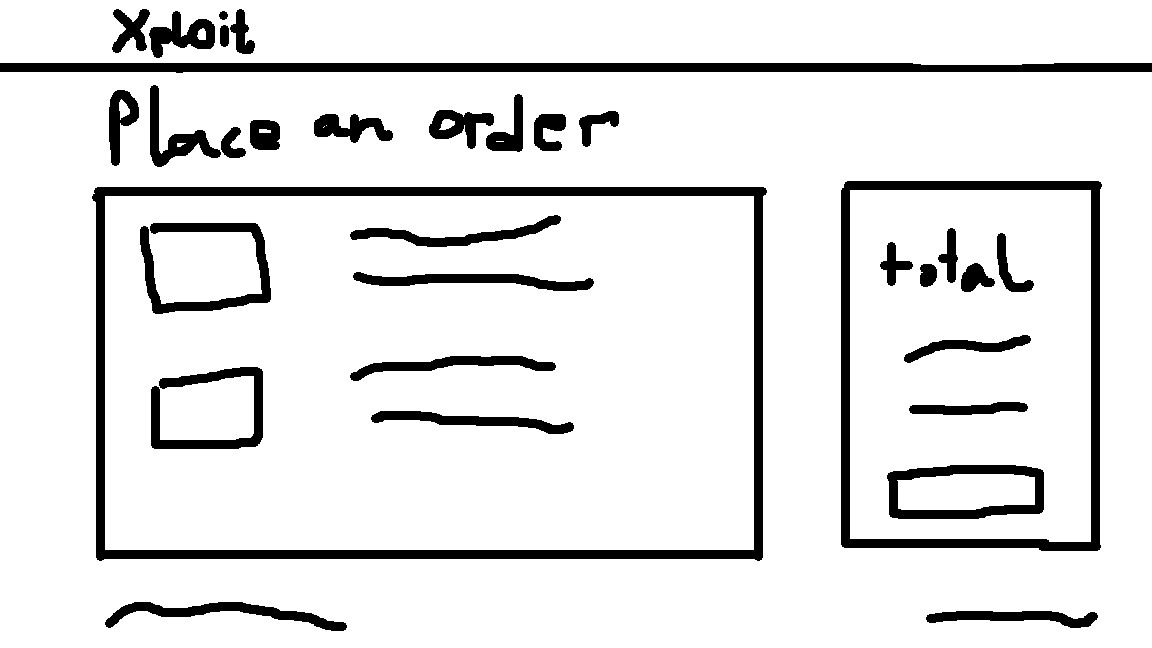 Xploit
Place an order
total